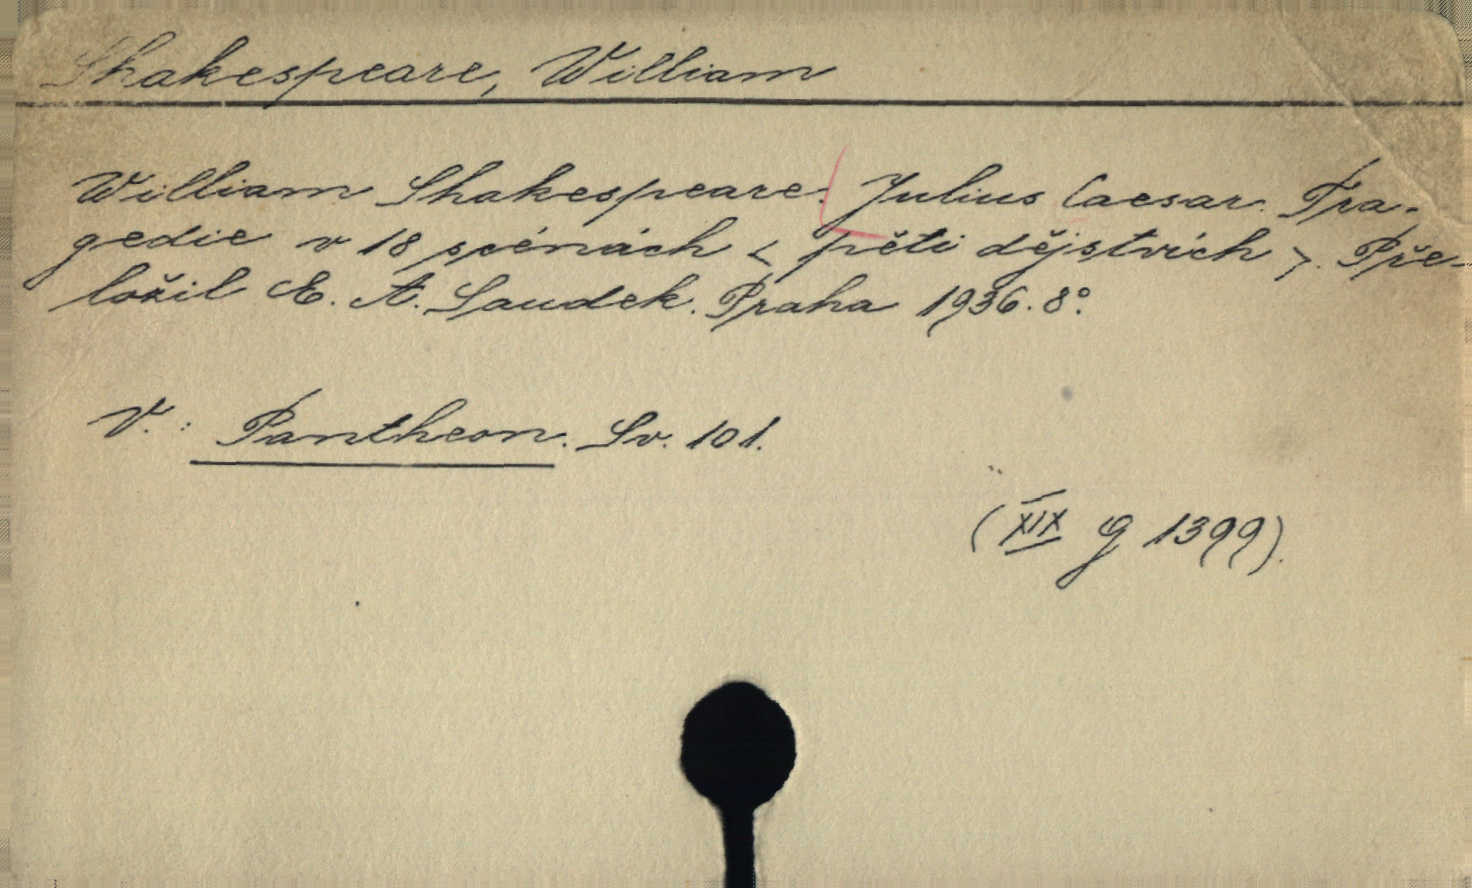 Shakespeare, William
William Shakespeare: Julius Caesar. Tra-
gedie v 18 scénách < pěti dějstvích >. Pře-
ložil E. A. Saudek. Praha 1936. 8°.
V.: Pantheon. Sv. 101.
(XIX G 1399).